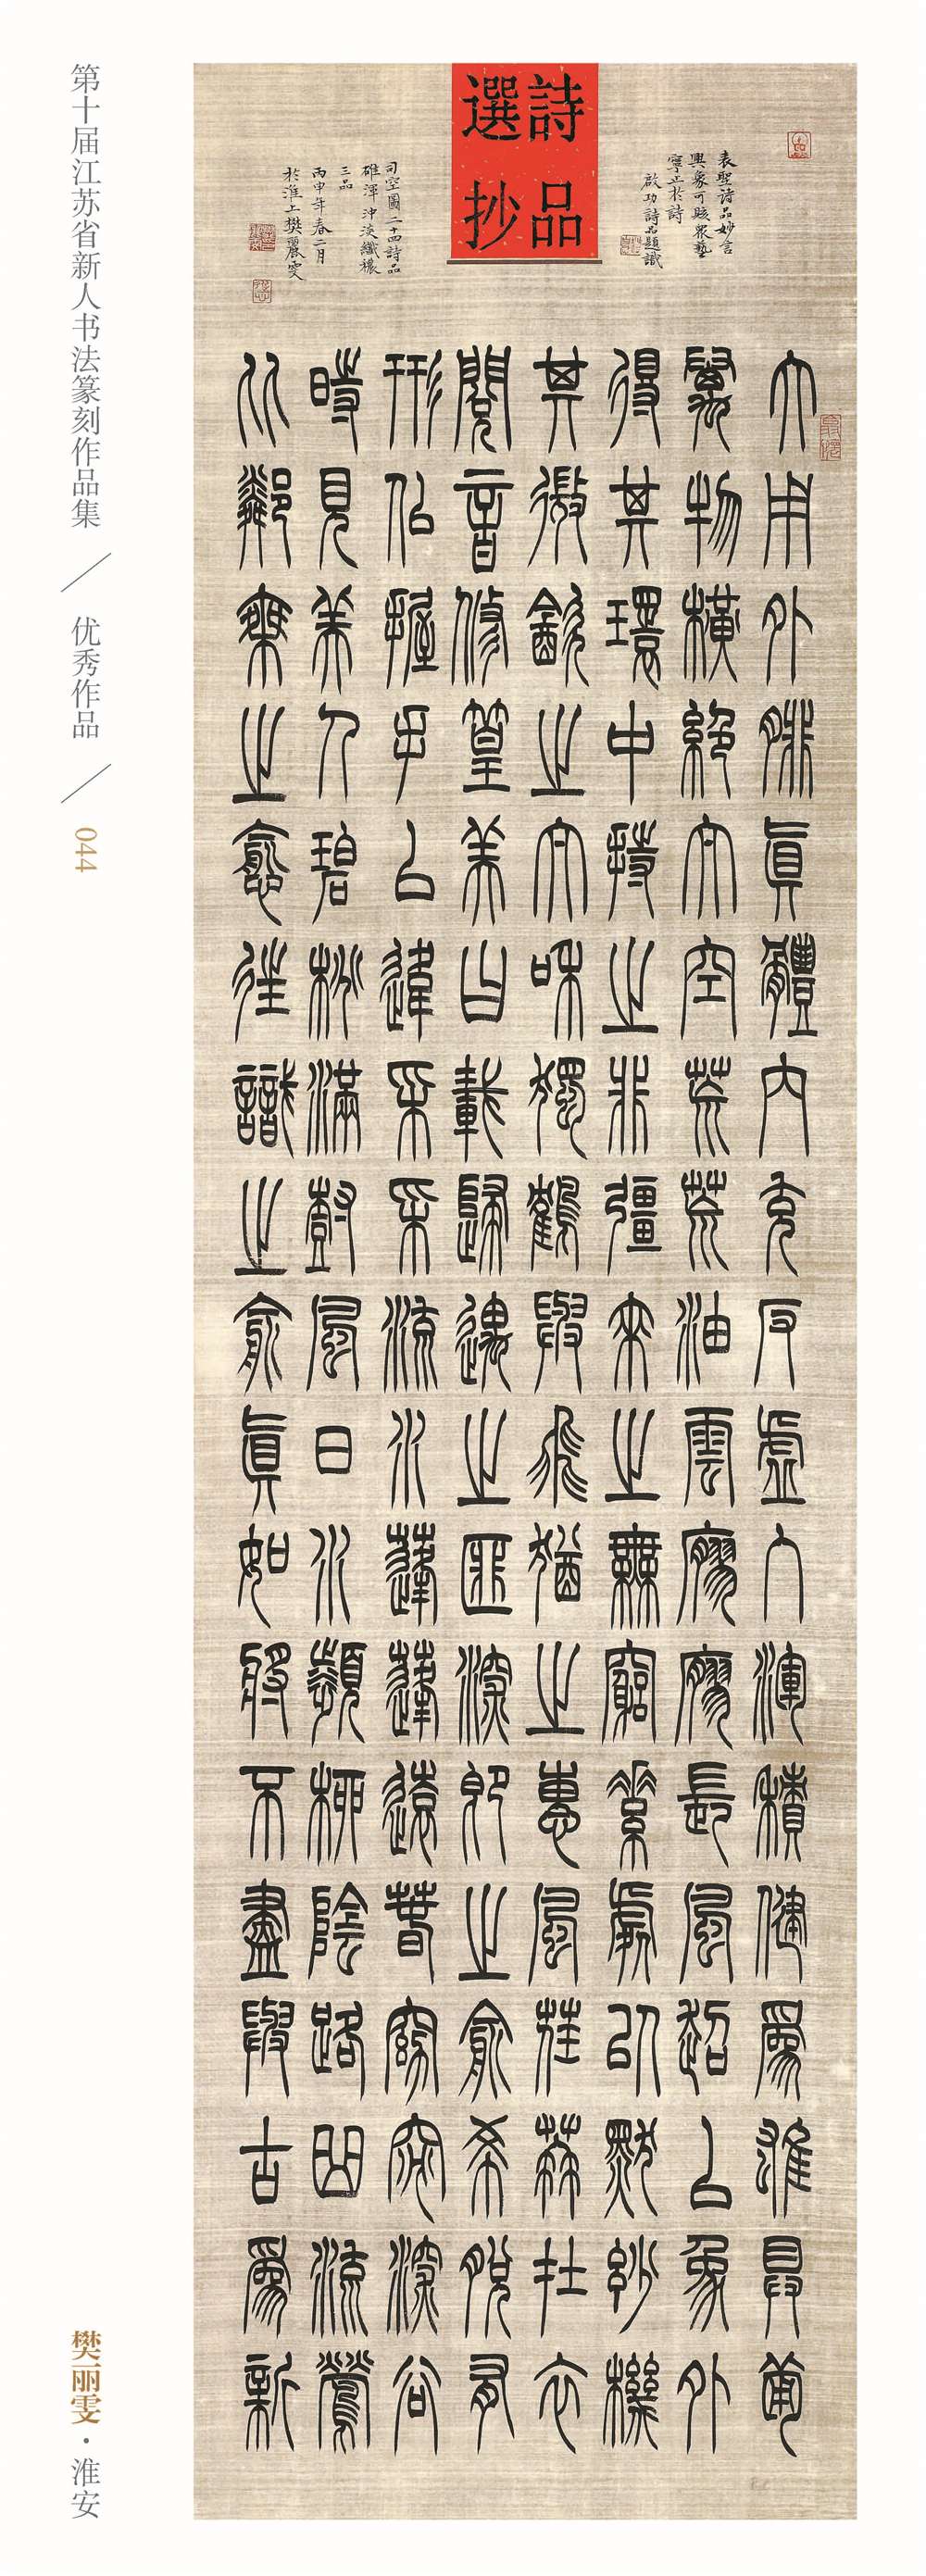 第十届江苏省新人书法篆刻作品集 / 优秀作品 / 044
樊丽雯·淮安
詩品
選抄
表聖詩品妙言
興象可賅眾藝
寧止於詩
啟功詩品題識
司空圖二十四詩品
雄渾沖淡纖穠
三品
丙申年春二月
於淮上樊麗雯
大用外腓真體內充反虛入渾積健為雄具備
萬物橫絕太空荒荒油雲寥寥長風超以象外
得其環中持之非彊來之無窮素處以默妙機
其微飲之太和獨鶴與飛猶之惠風荏苒在衣
閱音修篁美曰載歸遇之匪深即之俞希脫有
形似握手已違采采流水蓬蓬遠春窈窕深谷
時見美人碧桃滿樹風日水濱柳陰路曲流鶯
比鄰乘之愈往識之俞真如將不盡與古為新